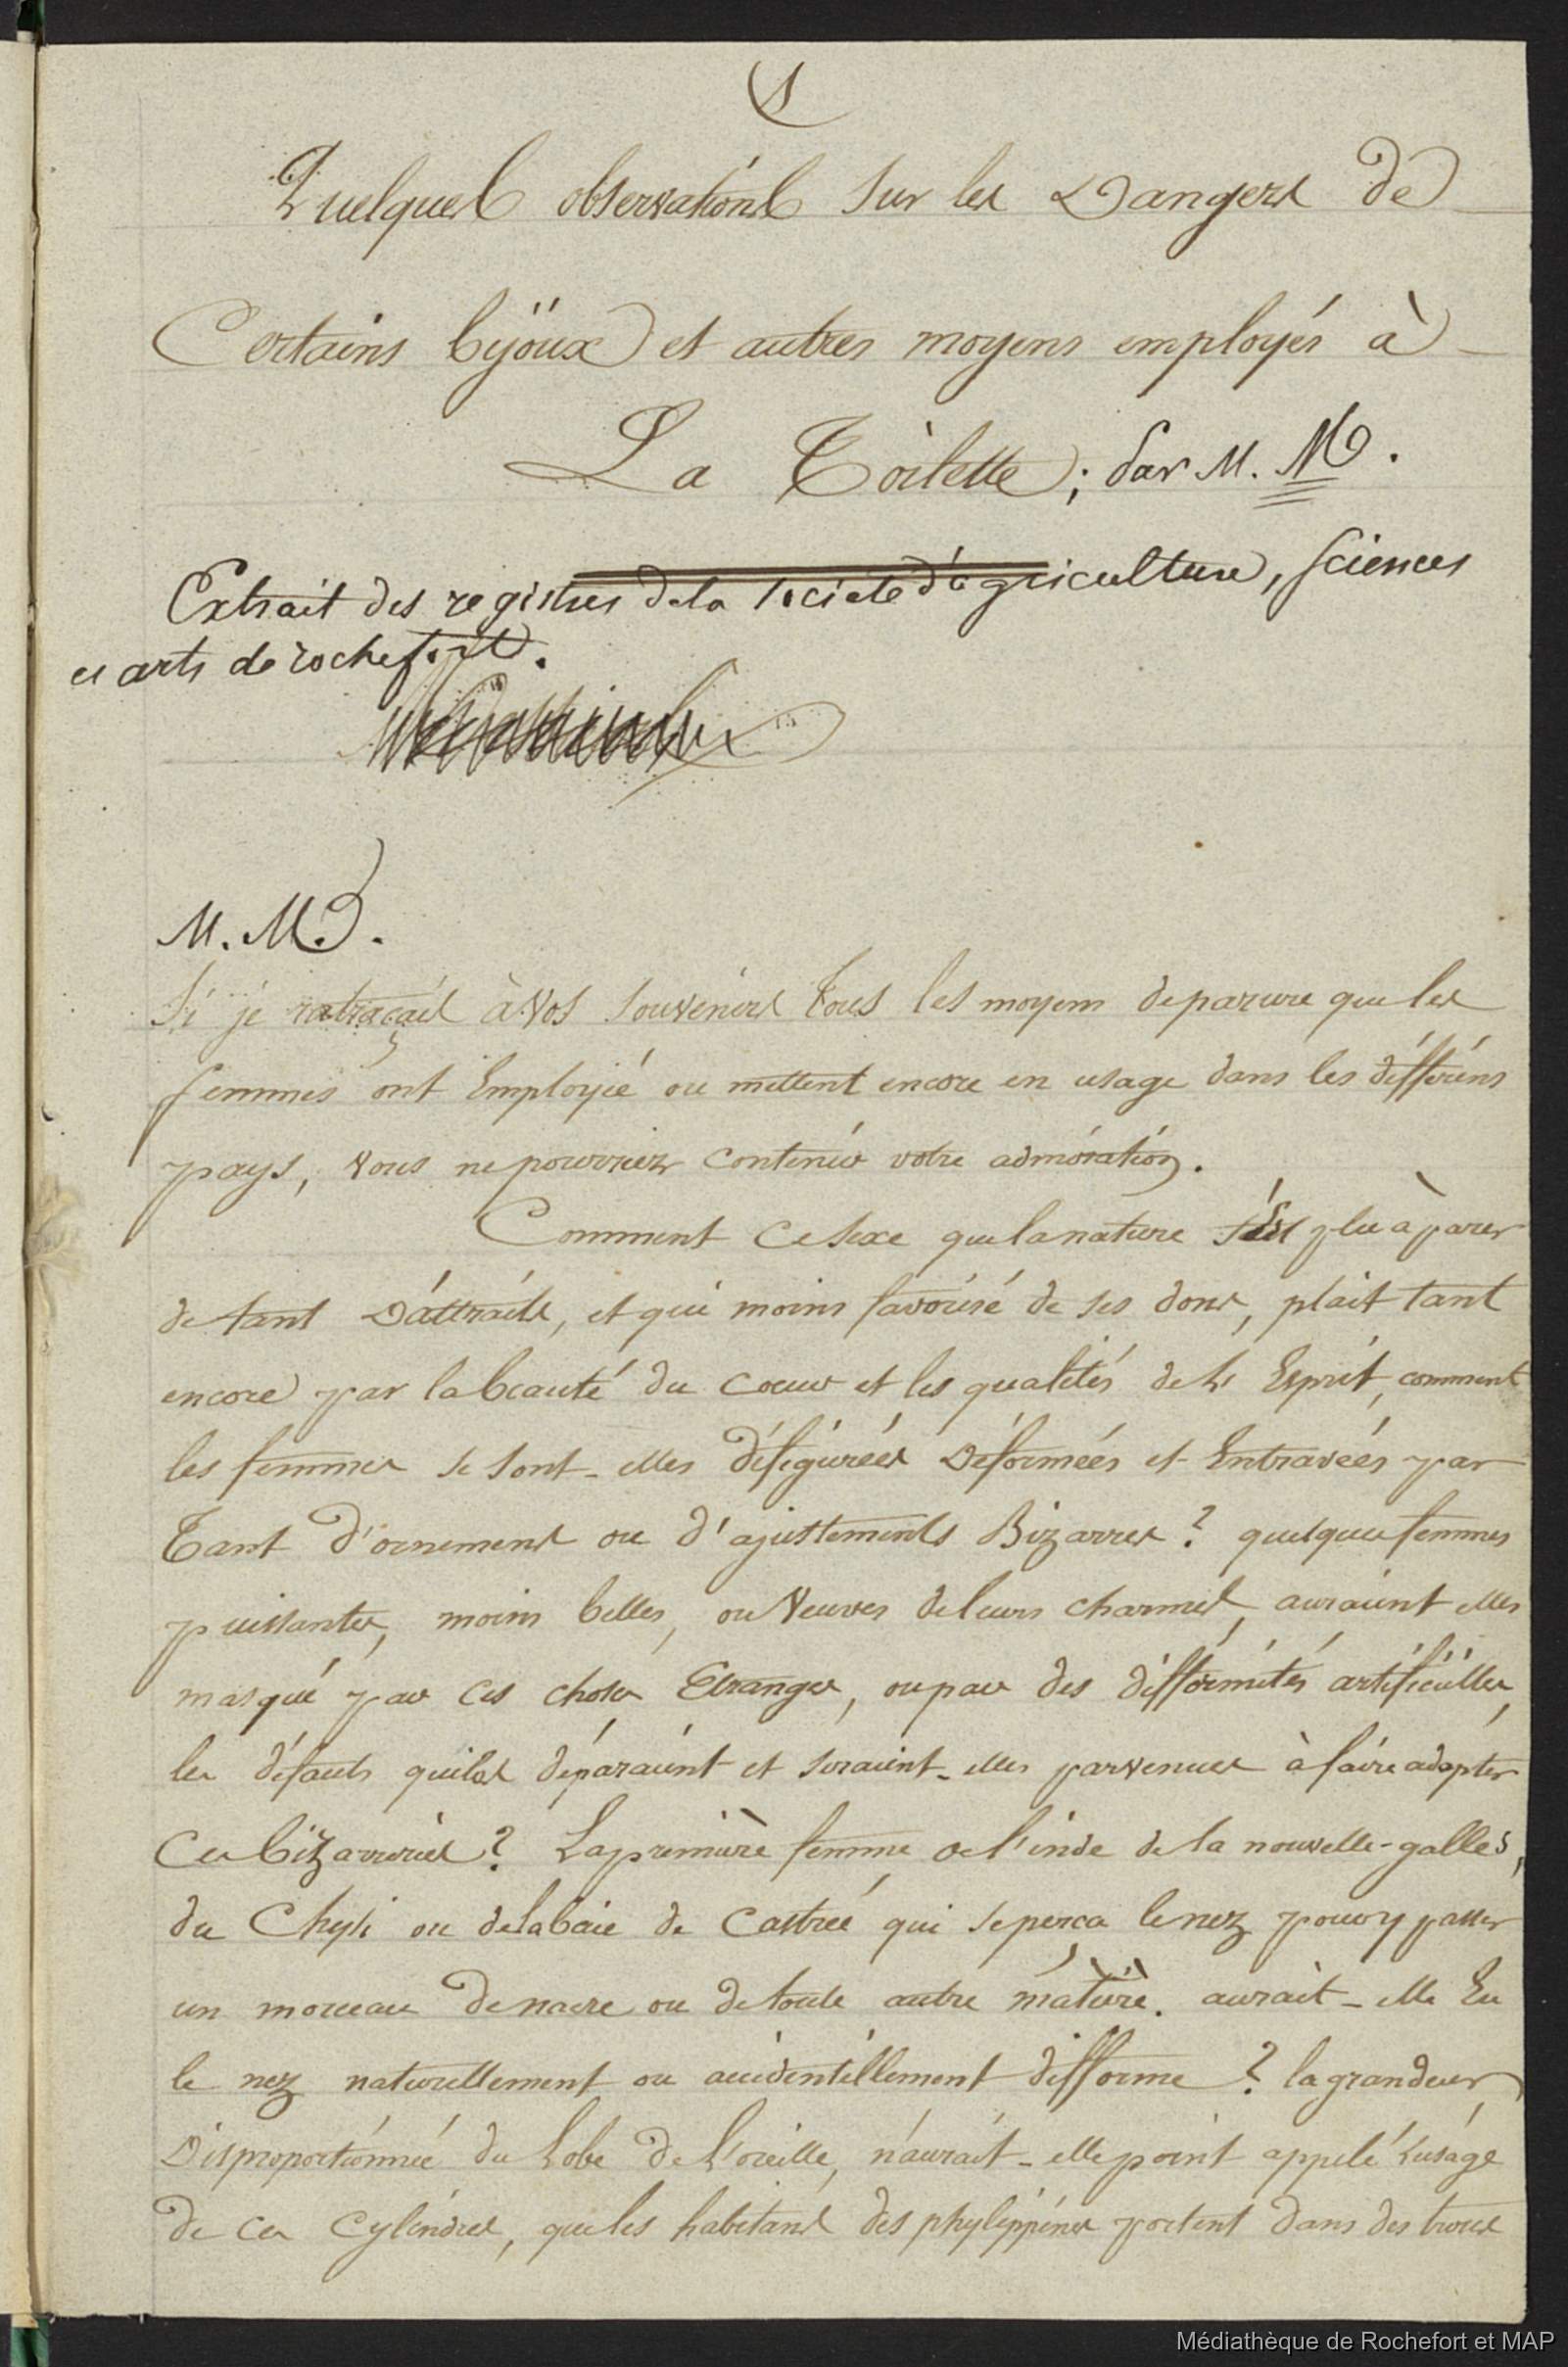 1
Quelques observations sur les Dangers de
Certains bijoux et autres moyens employés à
La Toilette; par M. M.
Extrait des registres de la société d'agriculture, sciences
et arts de rochefort.
M. M.
Si je retraçais à vos souvenirs tous les moyens de parure que les
femmes ont Employié ou mettent encore en usage dans les différens
pays, vous ne pourriez contenir votre admiration.
Comment ce sexe que la nature s'est plu à parer
de tant D'attraits, et qui moins favorisé de ses dons, plait tant
encore par la beauté du coeur et les qualités de l'Esprit, comment
les femmes se sont-elles défigurées Déformées et Entravées par
Tant d'ornemens ou d'ajustements Bizarres? quelques femmes
puissantes, moins belles, ou veuves de leurs charmes, auraient elles
masqué par ces choses Etranges, ou par des difformités artificielles,
les défauts qui les déparaient et seraient-elles parvenues à faire adopter
Ces bizarreries? La première femme de l'inde de la nouvelle-galles,
du Chyli ou de la baie de Castrée qui se perça le nez pour y passer
un morceau de nacre ou de toute autre matière. aurait-elle Eu
le nez naturellement ou accidentellement difforme? la grandeur
Disproportionnée du Lobe de L'oreille, n'aurait-elle point appelé L'usage
de ces Cylindres, que les habitans des phylippines portent dans des trous
Médiathèque de Rochefort et MAP